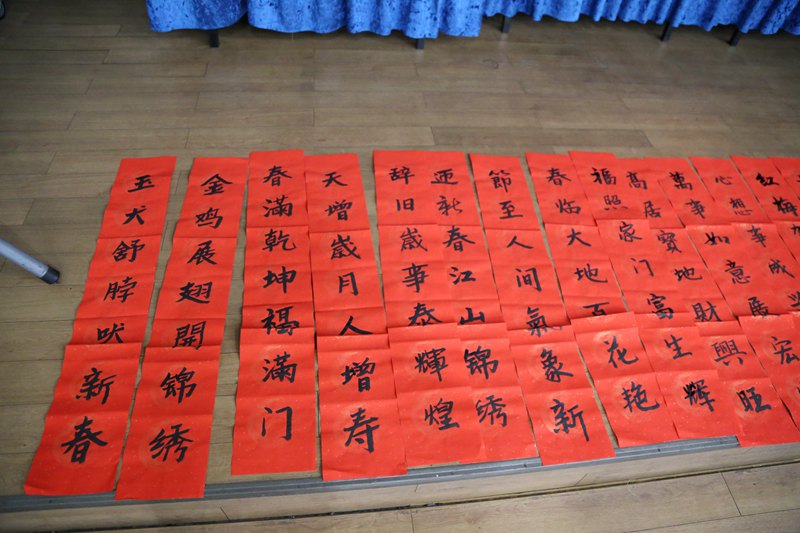 红梅
心想事成
萬事如意展宏
高居寶地財興旺
福照家门富生辉
春临大地百花艳
節至人间氣象新
迎新春江山锦绣
辞旧歲事泰輝煌
天增歲月人增寿
春滿乾坤福滿门
金鸡展翅開锦绣
玉犬舒脖吠新春